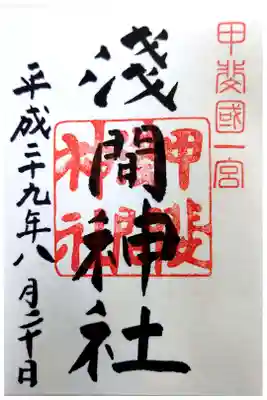 甲斐國一宮
浅間神社
甲斐浅間神社
平成二十九年八月二十日